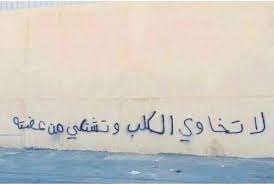 لا تخاوي الكلب وتشتكي من عضته